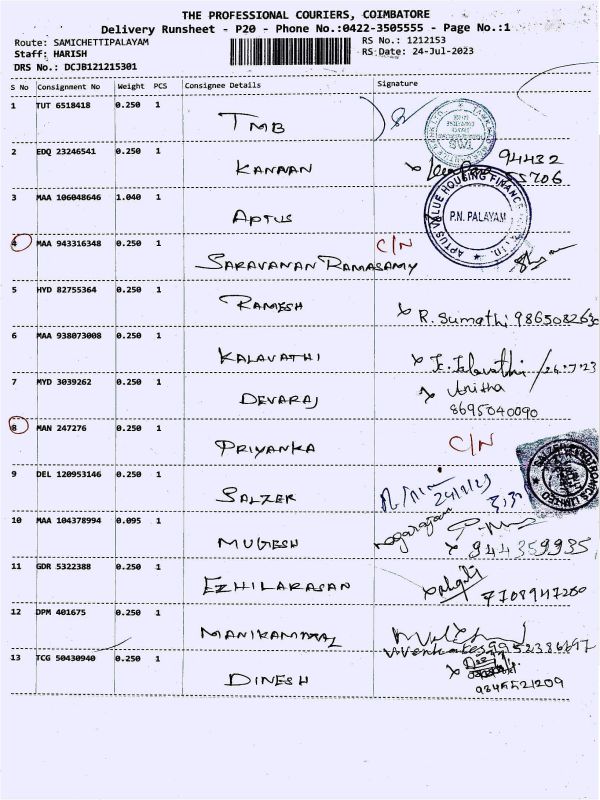 THE PROFESSIONAL COURIERS, COIMBATORE
Delivery Runsheet - P20 - Phone No.:0422-3505555 - Page No.:1
Route: SAMICHETTIPALAYAM
RS No.: 1212153
Staff: HARISH
RS Date: 24-Jul-2023
DRS No.: DCJB121215301
S No Consignment No Weight PCS Consignee Details Signature
1 TUT 6518418 0.250 1 TMB
2 EDQ 23246541 0.250 1 KANNAN 94432
55706
3 MAA 106048646 1.040 1 APTUS
APTUS VALUE HOUSING FINANCE
P.N. PALAYAM
4 MAA 943316348 0.250 1 SARAVANAN RAMASAMY C/N
5 HYD 82755364 0.250 1 RAMESH R. Sumathi
6 MAA 938073008 0.250 1 KALAVATHI
7 MYD 3039262 0.250 1 DEVARAJ Anitha
8695040090
8 MAN 247276 0.250 1 PRIYANKA C/N
9 DEL 120953146 0.250 1 SALZER
SALZER ELECTRONICS LIMITED
10 MAA 104378994 0.095 1 MUGESH nagarajan
944359935
11 GDR 5322388 0.250 1 EZHILARASAN
12 DPM 401675 0.250 1 MANIKAMMAL
13 TCG 50430940 0.250 1 DINESH
9345521209